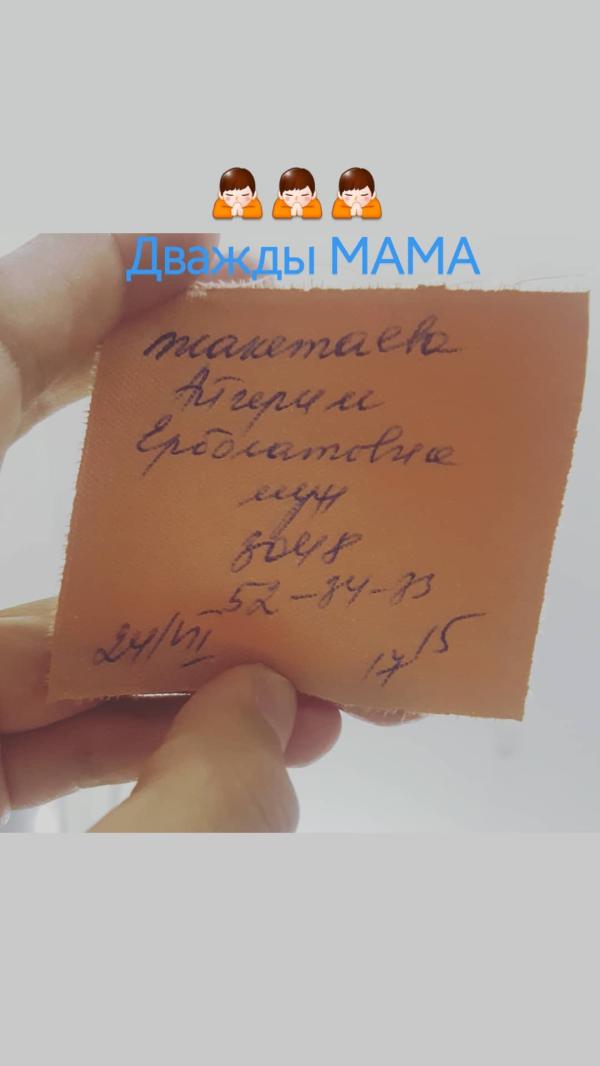 Дважды МАМА
Жакетаева
Айгерим
Ерболатовна
муж
8048
52-84-83
24/VII
17 15